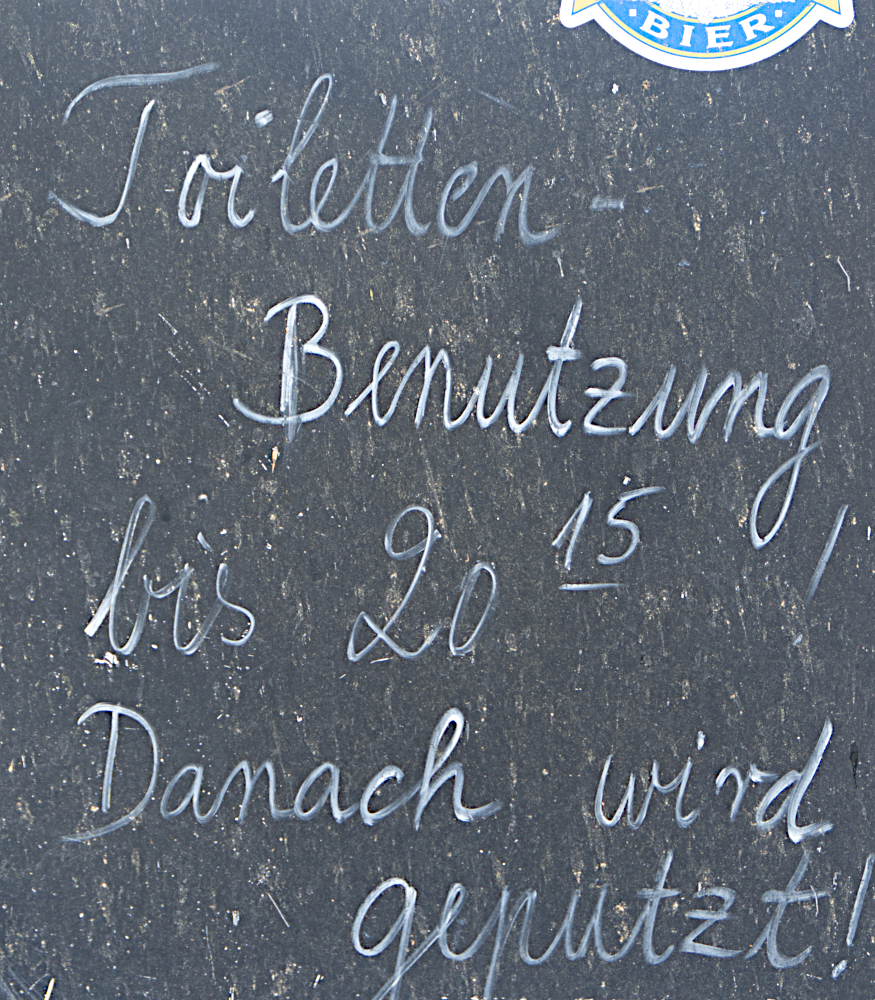 · BIER ·
Toiletten-
Benutzung
bis 20 15 !
Danach wird
geputzt!